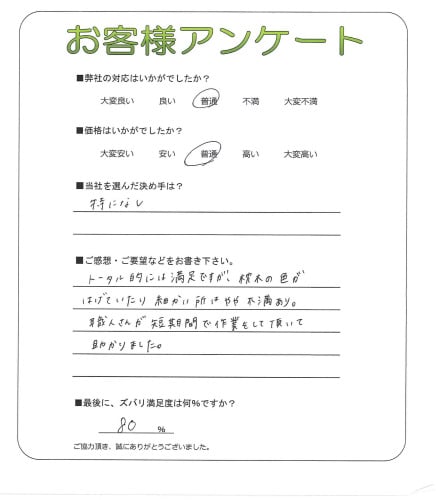 お客様アンケート
■弊社の対応はいかがでしたか?
大変良い 良い 普通 不満 大変不満
■価格はいかがでしたか?
大変安い 安い 普通 高い 大変高い
■当社を選んだ決め手は?
特になし
■ご感想・ご要望などをお書き下さい。
トータル的には満足ですが、枕木の色が
はげていたり細かい所はやや不満あり。
職人さんが短期間で作業をして頂いて
助かりました。
■最後に、ズバリ満足度は何%ですか?
80 %
ご協力頂き、誠にありがとうございました。